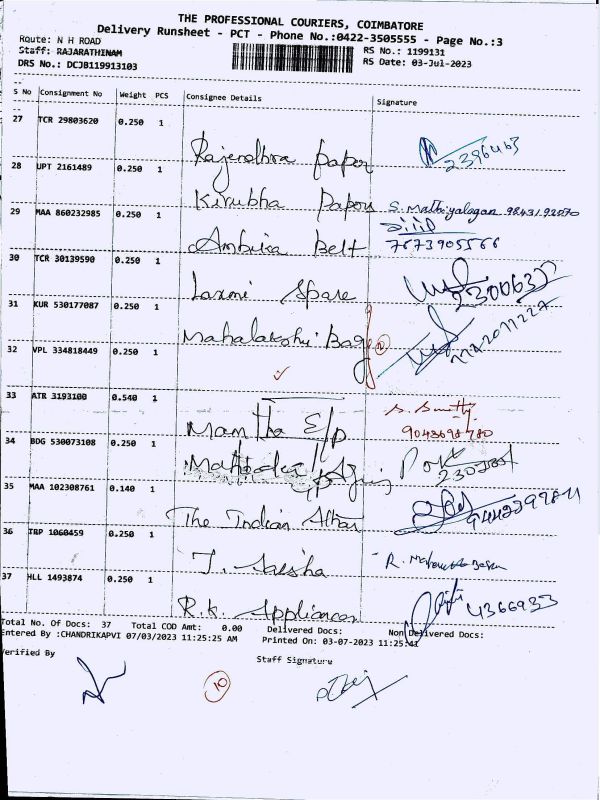 THE PROFESSIONAL COURIERS, COIMBATORE
Delivery Runsheet - PCT - Phone No.:0422-3505555 - Page No.:3
Route: N H ROAD
RS No.: 1199131
Staff: RAJARATHINAM
RS Date: 03-Jul-2023
DRS No.: DCJB119913103
S No Consignment No Weight PCS Consignee Details Signature
27 TCR 29803620 0.250 1
Rajendhra paper 2396463
28 UPT 2161489 0.250 1
Kirubha Papers S. Mathiyalagan
29 MAA 860232985 0.250 1
Ambika Belt 7673905566
30 TCR 30139590 0.250 1
Laxmi Spare
31 KUR 530177087 0.250 1
Mahalakshi Bag
32 VPL 334818449 0.250 1
33 ATR 3193100 0.540 1
Mamtha E/p
9043698780
34 BDG 530073108 0.250 1
35 MAA 102308761 0.140 1
The Indian
36 TRP 1060459 0.250 1
37 HLL 1493874 0.250 1
R.K. Appliances 4366933
Total No. Of Docs: 37 Total COD Amt: 0.00 Delivered Docs: Non Delivered Docs:
Entered By :CHANDRIKAPVI 07/03/2023 11:25:25 AM Printed On: 03-07-2023 11:25:41
Verified By Staff Signature
10